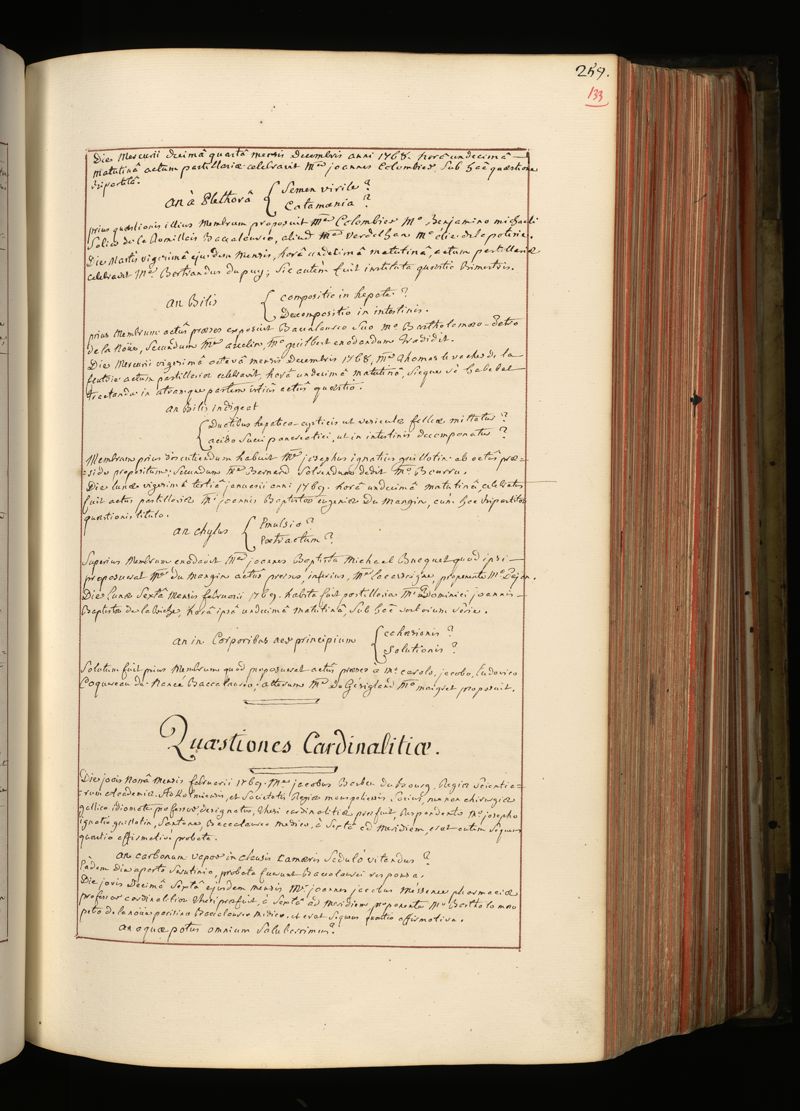 259.
133
Die Mercurii decimâ quartâ mensis decembris anni 1768. horâ undecimâ
matutinâ actum pastillariæ celebravit Mer joannes Colombier, sub hâc quæstione
bipartitâ.
an à Plethorâ { Semen virile ?
Catamænia ?
prius quæstionis illius Membrum proposuit Mer Colombier Mo Benjamino michaeli
Solier de la Romillais Baccalaureo, aliud Mer Verdelhan Mo
Die Martis vigesimâ ejusdem Mensis, horâ undecimâ matutinâ, actum pastillariæ
celebravit Mer Bertrandus dupuy; sic autem fuit instituta quæstio Bimestris.
an Bilis { compositio in hepate ?
Decompositio in intestinis.
prius Membrum actûs præses exposuit Baccalaureo suo Mo Bartholomæo-Petro
de la Noüe, secundum Mer Mo guilbert enodandum tradidit.
Die Mercurii vigesimâ octavâ mensis Decembris 1768, Mer thomas le vacher de la
feutrie actum pastillariæ celebravit, horâ undecimâ matutinâ, sicque se habebat
tractanda in utramque partem istius actûs quæstio.
an Bilis indigeat
{ Ductibus hepatico-cysticis ut vesiculæ felleæ mittatur ?
acido succi pancreatici, ut in intestinis decomponatur ?
Membrum prius discutiendum habuit Mer josephus ignatius guillotin ab actûs præ=
side propositum; secundum Mer Bernard solvendum dedit Mo
Die lunæ vigesimâ tertiâ januarii anni 1769. horâ undecimâ matutinâ celebratus
fuit actus pastillariæ Mi joannis Baptistæ eugenii du Mangin, cum hoc bipartitæ
quæstionis titulo.
an chylus { Emulsio ?
Extractum ?
Superius Membrum enodavit Mer joannes Baptista Michael Bucquet quod ipsi
proposuerat Mer du Mangin actûs præses, inferius, Mer proponente Mo Dejan.
Die Lunæ Sextâ Mensis februarii 1769. habita fuit pastillaria Mi Dominici joannis
Baptistæ horâ ipsâ undecimâ matutinâ, sub hoc verborum serie.
an in Corporibus aer principium { cohæsionis ?
solutionis ?
Solutum fuit prius Membrum quod proposuerat actûs præses a Mo carolo, jacobo, Ludovico
Coquereau Baccalaureo; alterum Mer De Gevigland Mo maigret proposuit.
Quæstiones Cardinalitiæ.
Die jovis Nonâ Mensis februarii 1769. Mer jacobus Barbeu dubourg, Regiæ scientia=
rum Academiæ et Societatis Regiæ monspeliensis Socius, nec non chirurgiæ
gallico idiomate professor designatus, thesi cardinalitiæ præfuit, Respondente Mo josepho
ignatio guillotin, Santone, Baccalaureo medico, à Sextâ ad Meridiem, erat autem sequens
quæstio affirmativè probata.
an carbonum vapor in clausis Cameris sedulò vitandus ?
Eâdem die aperto scrutinio, probata fuerunt Baccalaurei responsa.
Die jovis Decimâ Sextâ ejusdem mensis Mer joannes jacobus Messence pharmaciæ
professor cardinalitiæ thesi præfuit, à sextâ ad meridiem, proponente Mo Bartholomæo
petro de la noüe parisino Baccalaureo Medico, et erat sequens quæstio affirmativa.
an aquæ potus omnium saluberrimus ?